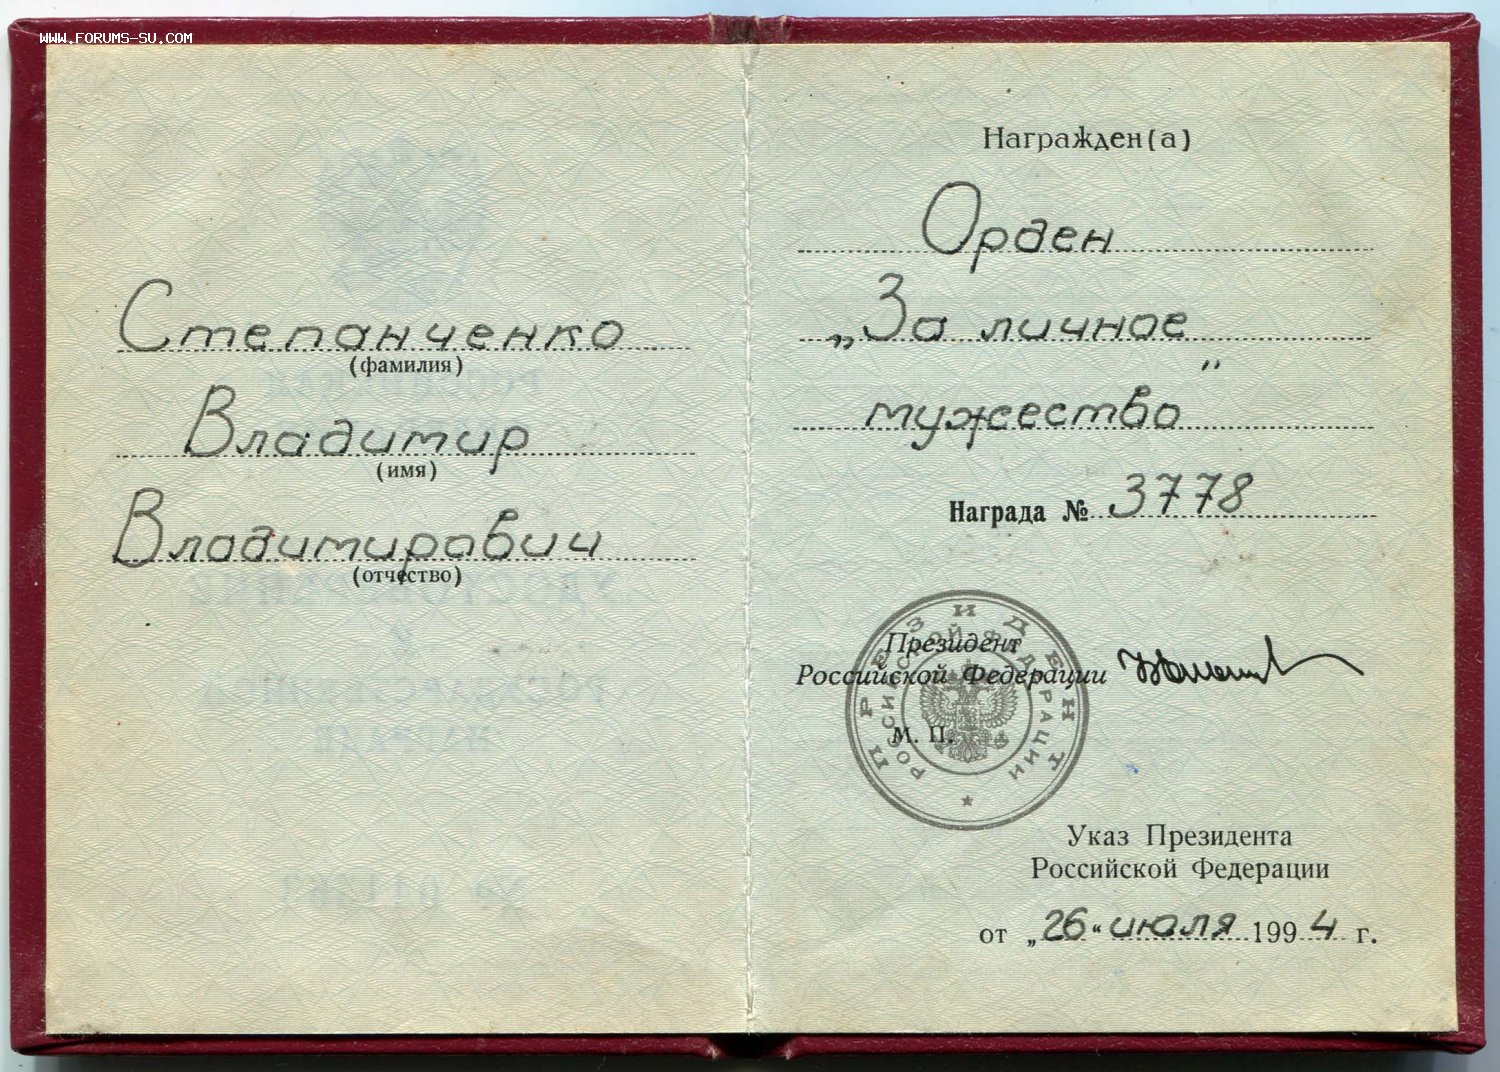 WWW.FORUMS-SU.COM
Степанченко
(фамилия)
Владимир
(имя)
Владимирович
(отчество)
Награжден(а)
Орден
„За личное
мужество"
Награда № 3778
Президент
Российской Федерации
М. П.
ПРЕЗИДЕНТ
РОССИЙСКОЙ ФЕДЕРАЦИИ
Указ Президента
Российской Федерации
от „26“ июля 1994 г.